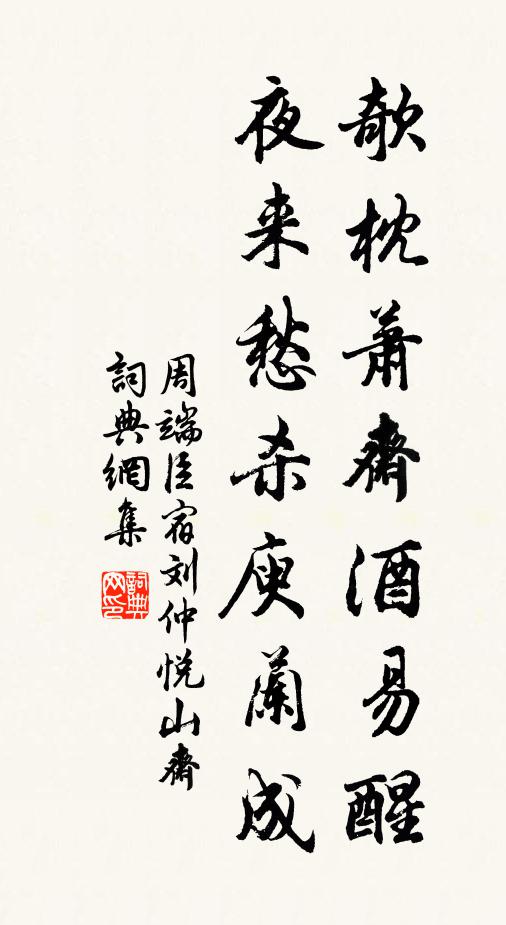 欹枕蕭齋酒易醒
夜来愁杀庾蘭成
周端臣宿刘仲悦山齋
詞典網集
詞典网印